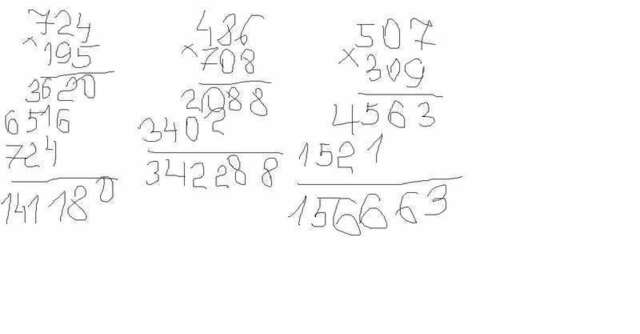 724
× 195
3620
6516
724
141180
486
× 708
2088
3402
342288
507
× 309
4563
1521
156663